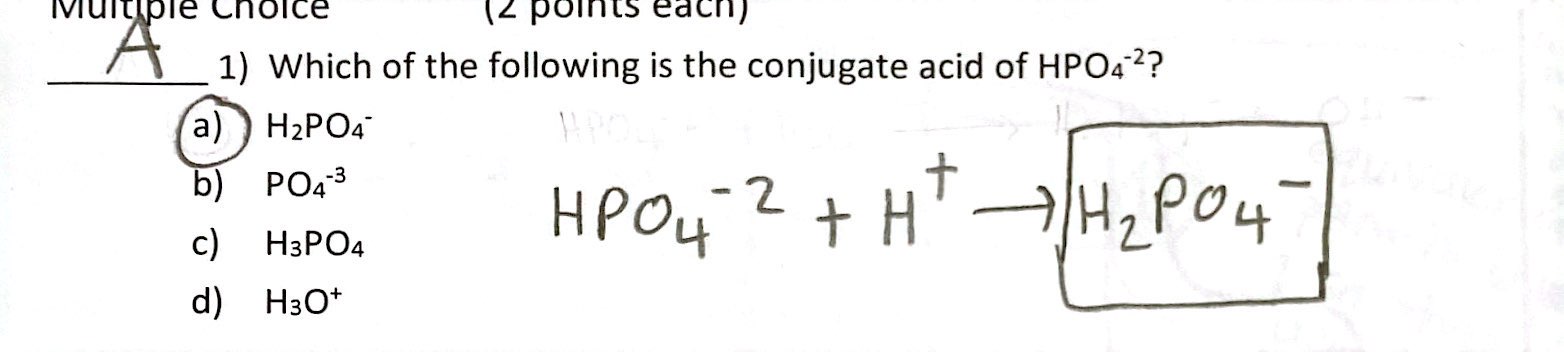 Multiple Choice (2 points each)
A 1) Which of the following is the conjugate acid of HPO₄⁻²?
a) H₂PO₄⁻
b) PO₄⁻³
c) H₃PO₄
d) H₃O⁺
HPO₄⁻² + H⁺ → H₂PO₄⁻